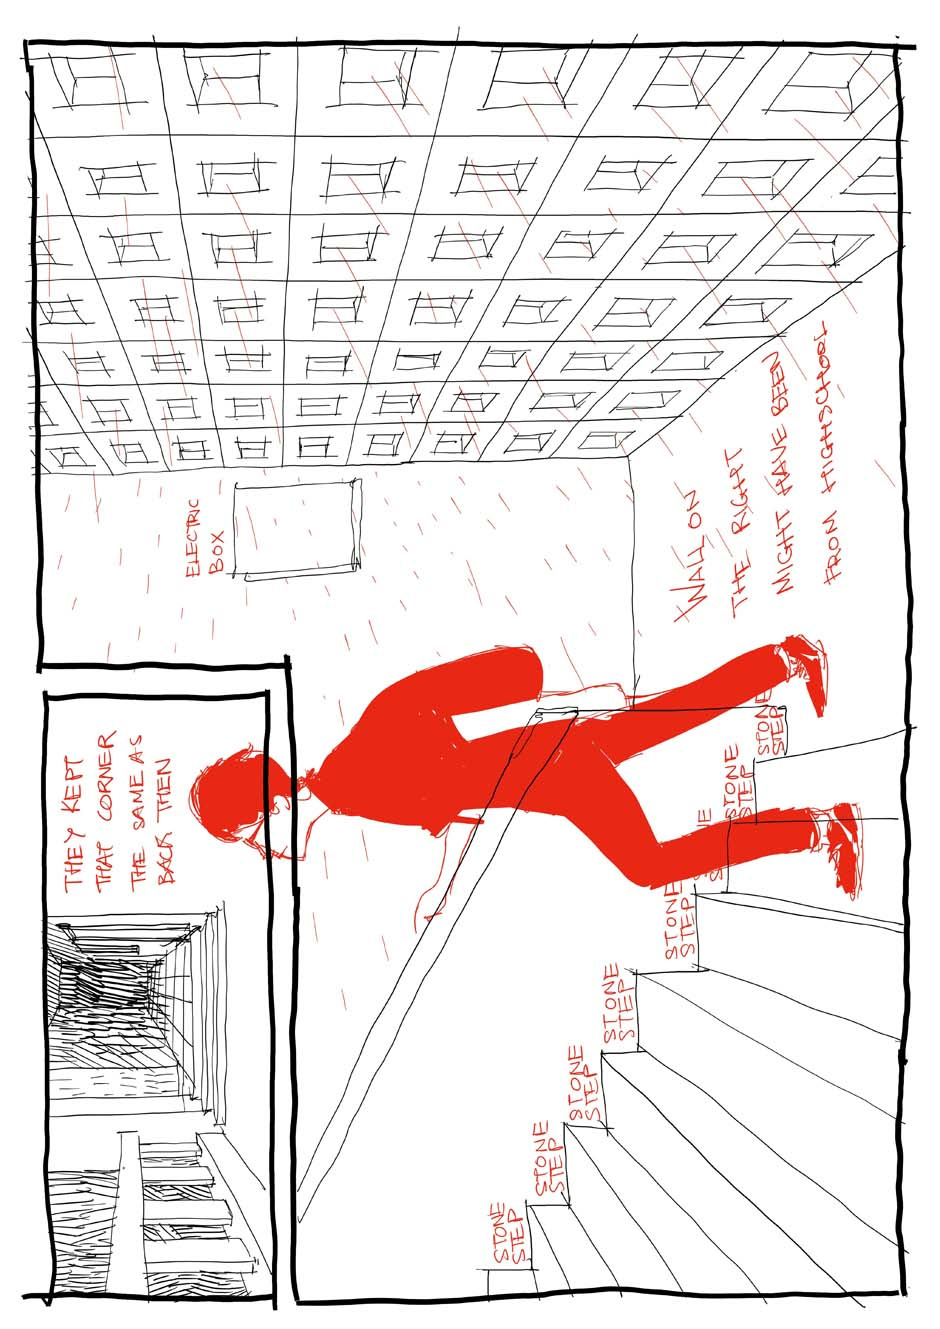 THEY KEPT
THAT CORNER
THE SAME AS
BACK THEN
ELECTRIC
BOX
WALL ON
THE RIGHT
MIGHT HAVE BEEN
FROM HIGHSCHOOL
STONE
STEP
STONE
STEP
STONE
STEP
STONE
STEP
STONE
STEP
STONE
STEP
STONE
STEP